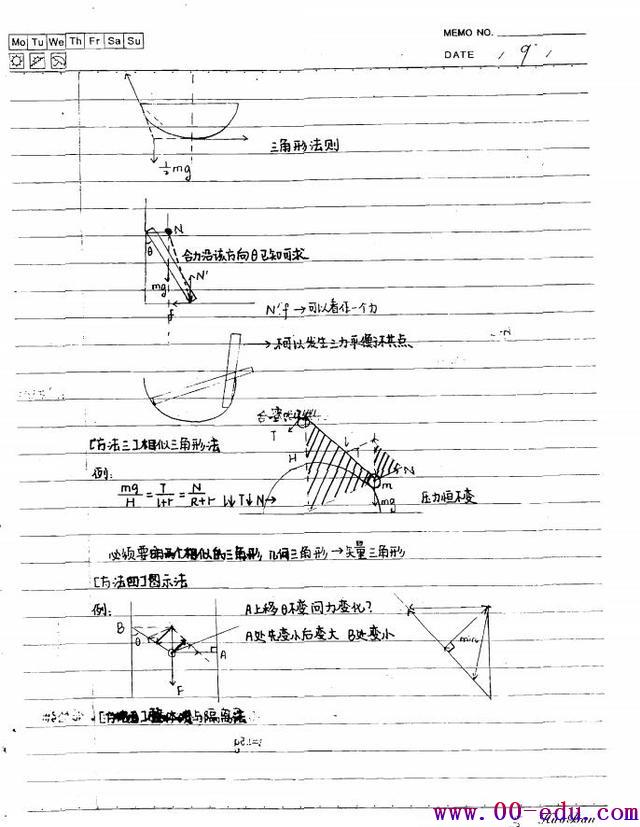 MEMO NO.
Mo Tu We Th Fr Sa Su
DATE 9
三角形法则
½mg
N
θ
合力沿该方向θ已知可求
N'
mg
f
N'f→可以看作一个力
→不可以发生三力平衡不共点、
T
[方法三]相似三角形法
H
N
例:
m
mg/H = T/(l+r) = N/(R+r) l↓T↓N→
mg
压力恒不变
必须要 两个相似的三角形, 几何三角形→矢量三角形
[方法四]图示法
例:
A上移θ不变问力变化?
B
θ
A处先变小后变大 B处变小
min
A
F
整体 与隔离法
www.00-edu.com